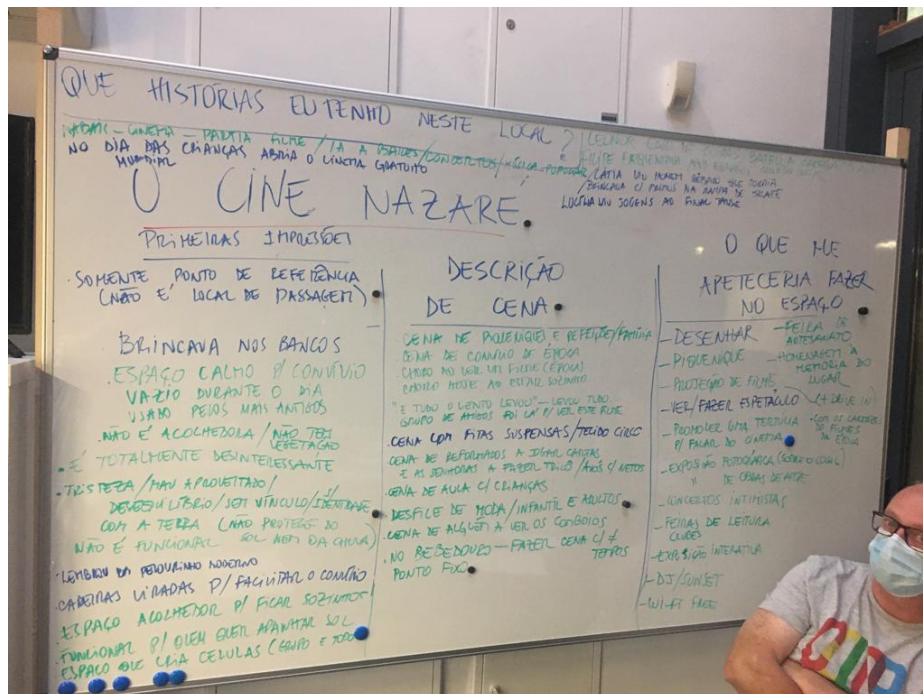 QUE HISTORIAS EU TENHO NESTE LOCAL?
CINEMA - PARTIA FILME / IA A BAILES / CONCERTOS / MÚSICA POPULAR
NO DIA DAS CRIANÇAS ABRIA O CINEMA GRATUITO
MUNDIAL
/ CÁTIA VIU HOMEM
/ BRINCAVA C/ PRIMOS NA RAMPA DE SKATE
VIU JOGENS AO FINAL TARDE
O CINE NAZARE.
PRIMEIRAS IMPRESSÕES
. SOMENTE PONTO DE REFERÊNCIA
(NÃO E' LOCAL DE PASSAGEM)
BRINCAVA NOS BANCOS
. ESPAÇO CALMO P/ CONVÍVIO
VAZIO DURANTE O DIA
USADO PELOS MAIS ANTIGOS
. NÃO É ACOLHEDORA / NÃO TEM
VEGETAÇÃO
. É TOTALMENTE DESINTERESSANTE
. TRISTEZA / MAU APROVEITADO /
DESEQUILÍBRIO / SEM VÍNCULO / IDENTIDADE
COM A TERRA (NÃO PROTEGE DO
NÃO É FUNCIONAL SOL NEM DA CHUVA)
. PELOURINHO MODERNO
. CADEIRAS VIRADAS P/ FACILITAR O CONVÍVIO
. ESPAÇO ACOLHEDOR P/ FICAR SOZINHO
. FUNCIONAL P/ QUEM QUER APANHAR SOL
ESPAÇO QUE CRIA CELULAS (GRUPO E TODO)
DESCRIÇÃO
DE CENA
CENA DE PIQUENIQUES E REFEIÇÕES / FAMÍLIA
CENA DE CONVÍVIO DE ÉPOCA
CHORO AO VER UM FILME (ÉPOCA)
CHORO HOJE AO ESTAR SOZINHO
"E TUDO O VENTO LEVOU" - LEVOU TUDO
GRUPO DE AMIGOS FOI LÁ P/ VER ESTE FILME
CENA COM FITAS SUSPENSAS / TECIDO CIRCO
CENA DE REFORMADOS A JOGAR CARTAS
E AS SENHORAS A FAZER TRICÔ / AVÓS C/ NETOS
. CENA DE AULA C/ CRIANÇAS
. DESFILE DE MODA / INFANTIL E ADULTOS
. CENA DE ALGUÉM A VER OS COMBOIOS
. NO BEBEDOURO - FAZER CENA C/ ≠
TEMPOS
PONTO FIXO
O QUE ME
APETECERIA FAZER
NO ESPAÇO
- DESENHAR
- PIQUENIQUE
- PROJEÇÃO DE FILMES
- VER/FAZER ESPETÁCULO
- PROMOVER UMA TERTÚLIA
P/ FALAR DO CINEMA
- EXPOSIÇÃO FOTOGRÁFICA (SOBRE O LOCAL)
" DE OBRAS DE ARTE
- CONCERTOS INTIMISTAS
- FEIRAS DE LEITURA
CLUBES
- EXPOSIÇÃO INTERATIVA
- DJ/SUNSET
- WI-FI FREE
- FEIRA DE
ARTESANATO
- HOMENAGEM À
MEMORIA DO
LUGAR
(+ DRIVE IN)
- COM OS CARTAZES
DE FILMES
DA ÉPOCA